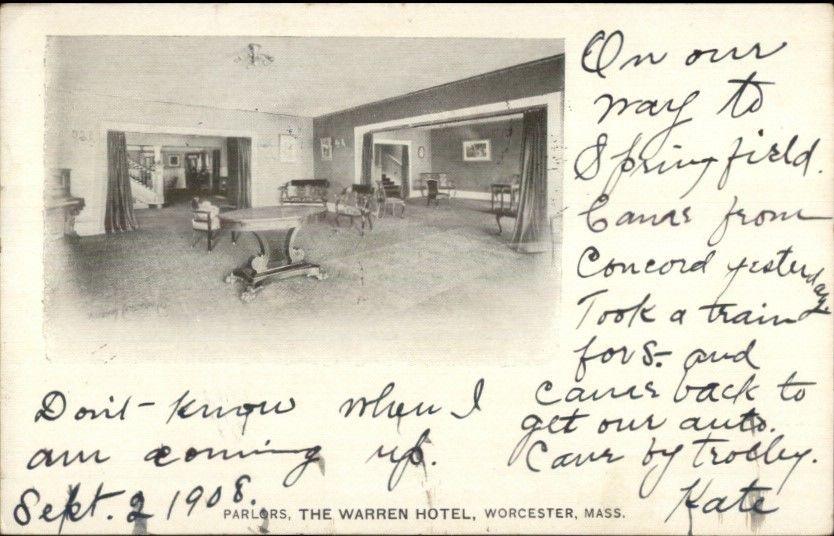 On our
way to
Springfield.
Came from
Concord yesterday
Took a train
for S. and
came back to
get our auto.
Came by trolley.
Kate
Don't know when I
am coming up.
Sept. 2 1908.
PARLORS, THE WARREN HOTEL, WORCESTER, MASS.